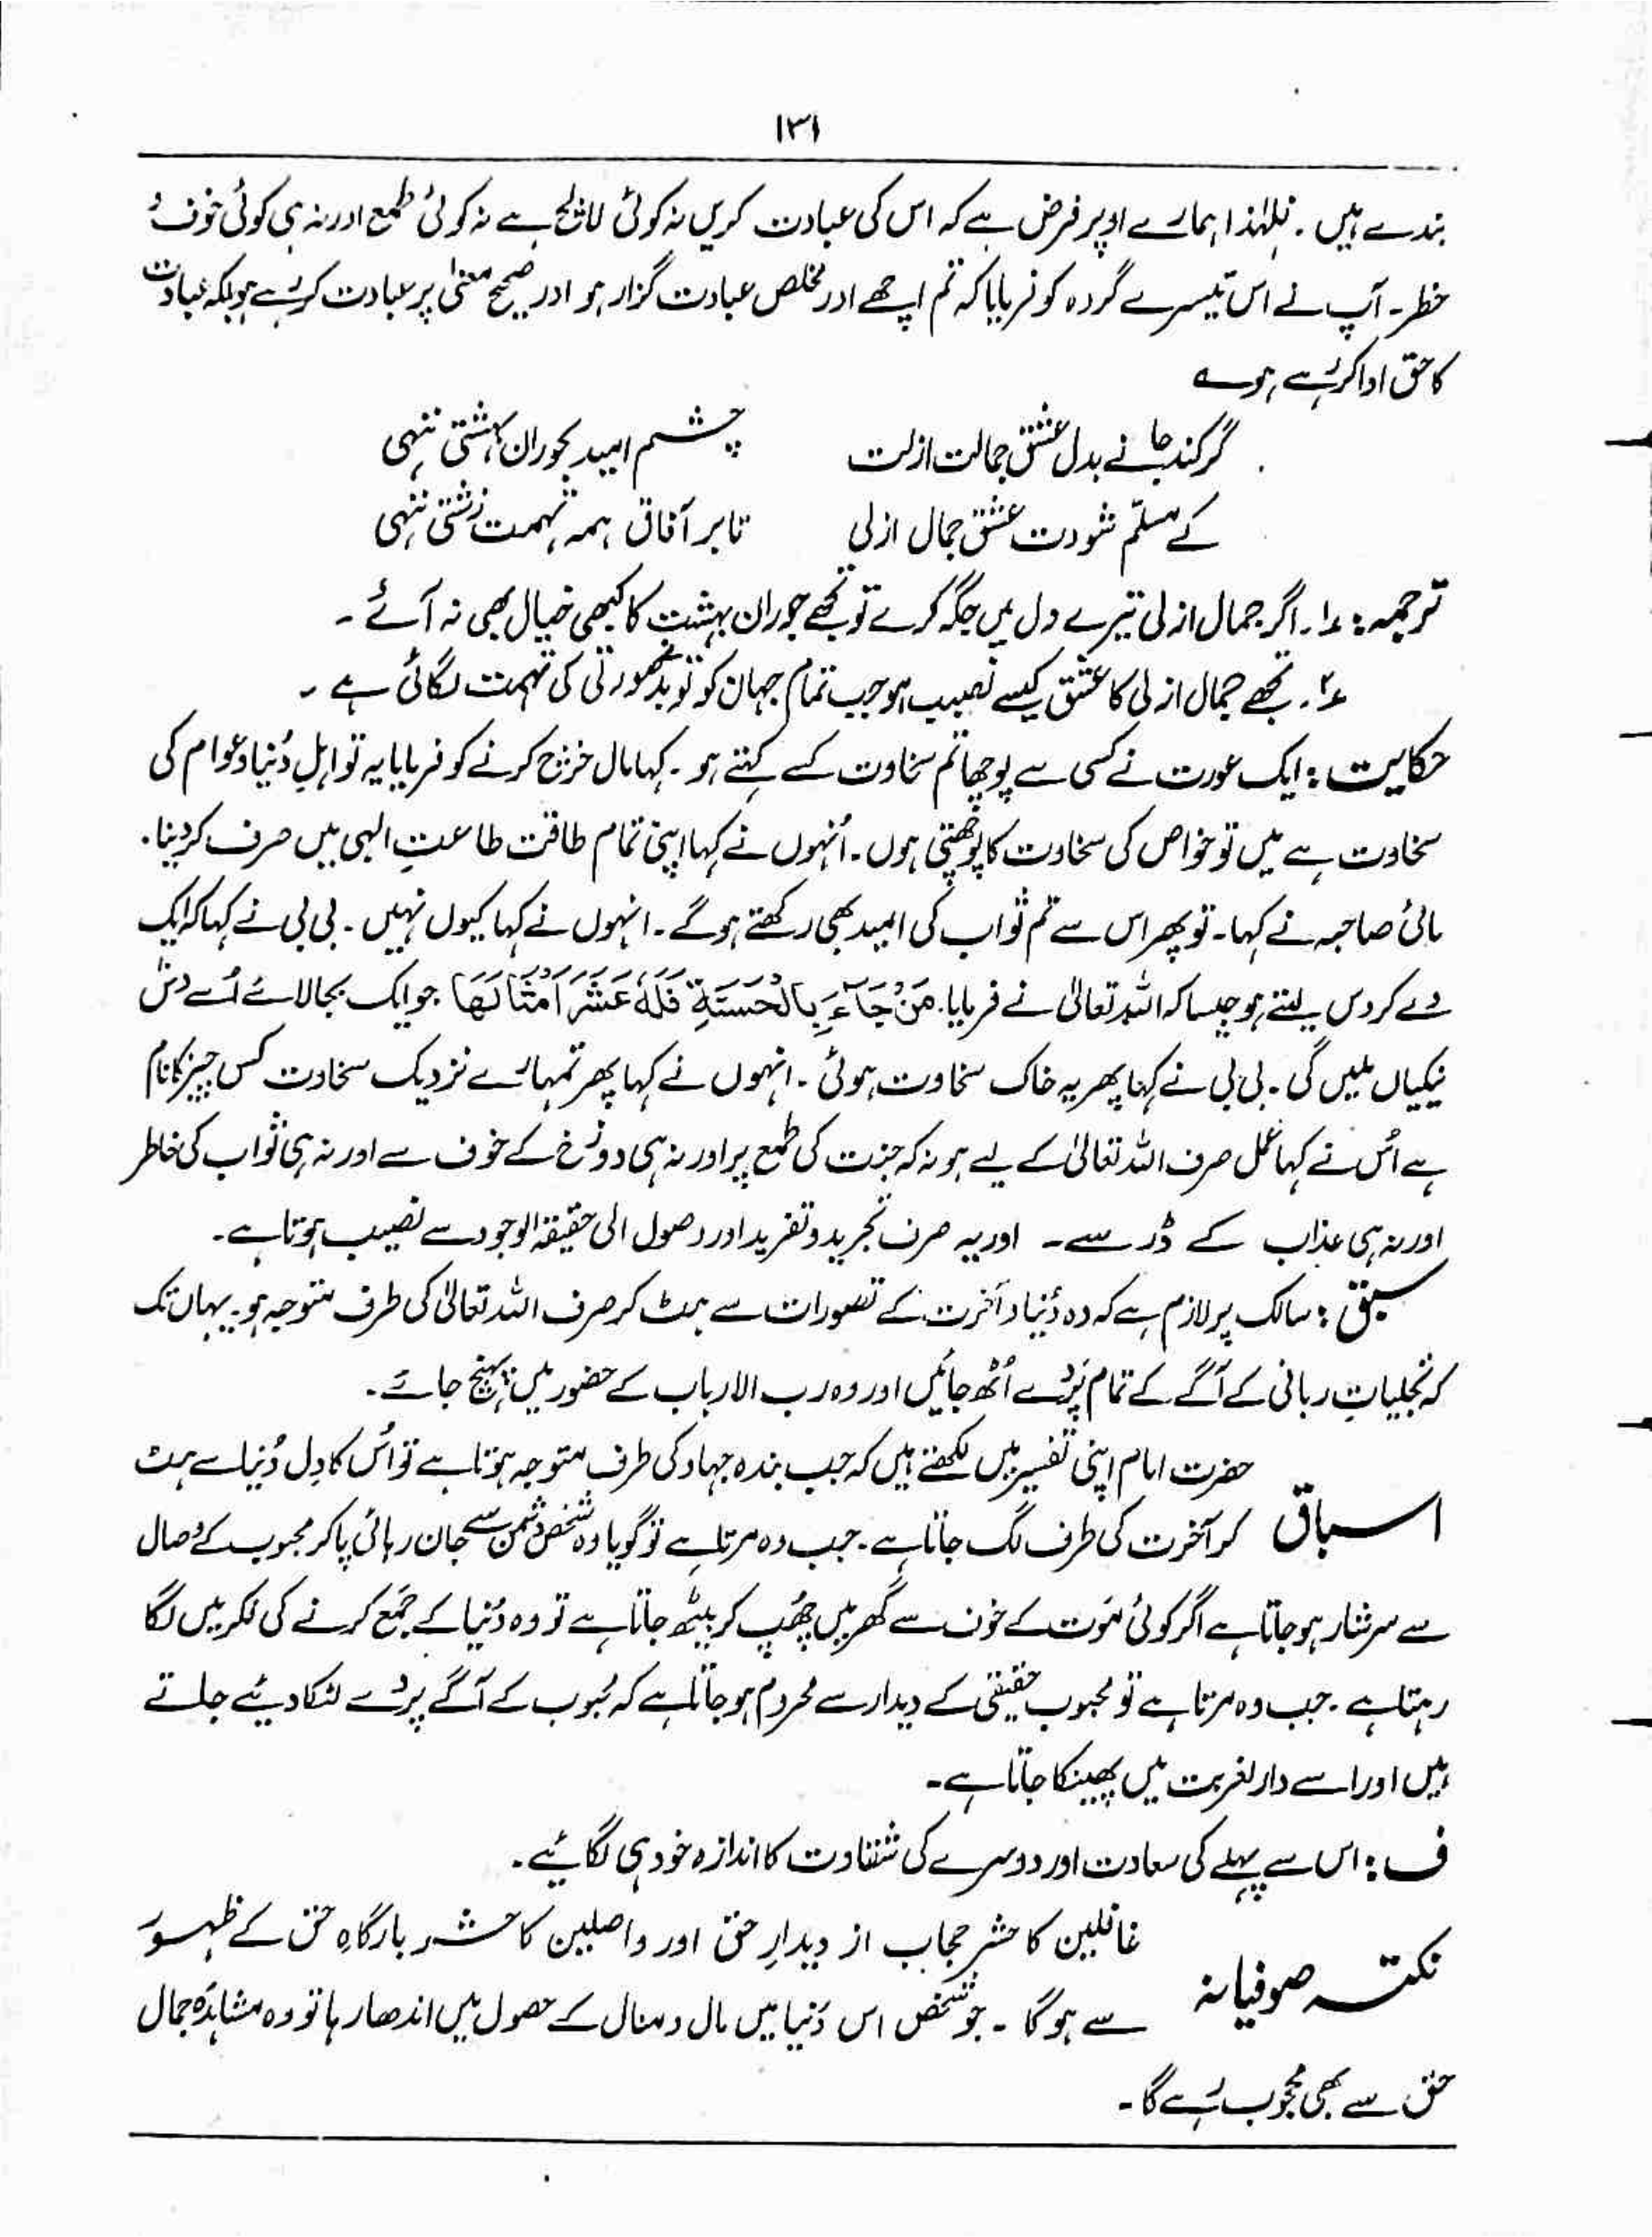 ۱۳۱
بندے ہیں . فلہٰذا ہمارے اوپر فرض ہے کہ اس کی عبادت کریں نہ کوئی لالچ ہے نہ کوئی طمع اور نہ ہی کوئی خوف و
خطر۔ آپ نے اس تیسرے گروہ کو فرمایا کہ تم اچھے اور مخلص عبادت گزار ہو اور صحیح معنیٰ پر عبادت کر رہے ہو بلکہ عبادت
کا حق ادا کر رہے ہو ؎
گر کند جانے بدل عشق جمالت ازلت چشم امید بحوران بہشتی ننہی
کے مسلّم شودت عشق جمال ازلی تا بر آفاق ہمہ تہمت زشتی ننہی
ترجمہ : ۱؎ . اگر جمال ازلی تیرے دل میں جگہ کرے تو تجھے حوران بہشت کا کبھی خیال بھی نہ آئے ۔
۲؎ . تجھے جمال ازلی کا عشق کیسے نصیب ہو جب تمام جہان کو تو بدصورتی کی تہمت لگائی ہے ۔
حکایت : ایک عورت نے کسی سے پوچھا تم سخاوت کسے کہتے ہو ۔ کہا مال خرچ کرنے کو فرمایا یہ تو اہلِ دُنیا و عوام کی
سخاوت ہے میں تو خواص کی سخاوت کا پوچھتی ہوں ۔ اُنہوں نے کہا اپنی تمام طاقت طاعتِ الٰہی میں صرف کر دینا .
مائی صاحبہ نے کہا ۔ تو پھر اس سے تم ثواب کی امید بھی رکھتے ہو گے ۔ انہوں نے کہا کیوں نہیں ۔ بی بی نے کہا کہ ایک
دے کر دس لیتے ہو جیسا کہ اللہ تعالیٰ نے فرمایا . مَنْ جَآءَ بِالْحَسَنَةِ فَلَهٗ عَشْرُ اَمْثَالِهَا جو ایک بجا لائے اُسے دس
نیکیاں ملیں گی ۔ بی بی نے کہا پھر یہ خاک سخاوت ہوئی ۔ انہوں نے کہا پھر تمہارے نزدیک سخاوت کس چیز کا نام
ہے اُس نے کہا عمل صرف اللہ تعالیٰ کے لیے ہو نہ کہ جنت کی طمع پر اور نہ ہی دوزخ کے خوف سے اور نہ ہی ثواب کی خاطر
اور نہ ہی عذاب کے ڈر سے ۔ اور یہ صرف تجرید و تفرید اور وصول الی حقیقۃ الوجود سے نصیب ہوتا ہے ۔
سبق : سالک پر لازم ہے کہ وہ دُنیا و آخرت کے تصورات سے ہٹ کر صرف اللہ تعالیٰ کی طرف متوجہ ہو ۔ یہاں تک
کہ تجلیاتِ ربانی کے آگے کے تمام پَردے اُٹھ جائیں اور وہ رب الارباب کے حضور میں پہنچ جائے ۔
اسباق حضرت امام اپنی تفسیر میں لکھتے ہیں کہ جب بندہ جہاد کی طرف متوجہ ہوتا ہے تو اُس کا دِل دُنیا سے ہٹ
کر آخرت کی طرف لگ جاتا ہے ۔ جب وہ مرتا ہے تو گویا وہ شخص دشمن سے جان رہائی پا کر محبوب کے وصال
سے سرشار ہو جاتا ہے اگر کوئی مَوت کے خوف سے گھر میں چھُپ کر بیٹھ جاتا ہے تو وہ دُنیا کے جمع کرنے کی فکر میں لگا
رہتا ہے ۔ جب وہ مرتا ہے تو محبوب حقیقی کے دیدار سے محروم ہو جاتا ہے کہ محبوب کے آگے پردے لٹکا دیئے جاتے
ہیں اور اسے دار لغربت میں پھینکا جاتا ہے ۔
ف : اس سے پہلے کی سعادت اور دوسرے کی شقاوت کا اندازہ خود ہی لگائیے ۔
نکتہ صوفیانہ غافلین کا حشر حجاب از دیدارِ حق اور واصلین کا حشر بارگاہِ حق کے ظہور
سے ہو گا ۔ جو شخص اس دُنیا میں مال و منال کے حصول میں اندھا رہا تو وہ مشاہدۂ جمال
حق سے بھی محجوب رہے گا ۔